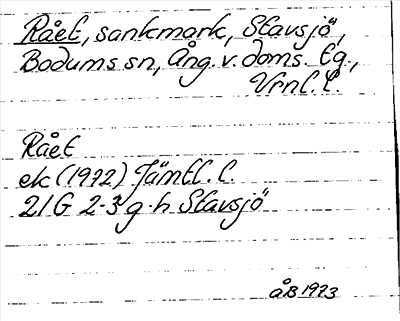 Rået, sankmark, Stavsjö,
Bodums sn, Ång. v. doms. tg.,
Vrnl. l.
Rået
ek (1972) Jämtl. l.
21G 2-3 g-h Stavsjö
ÅB 1973